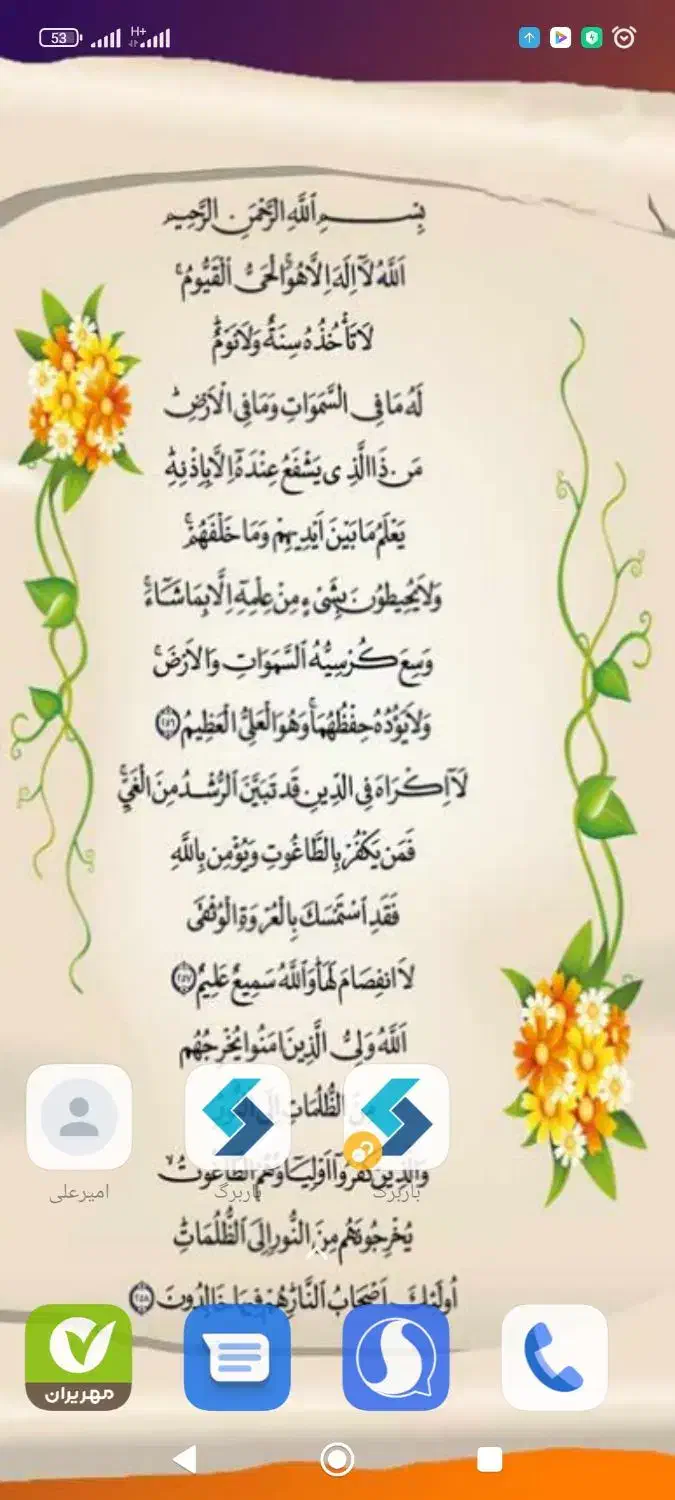 53
H+
بِسْمِ ٱللَّهِ ٱلرَّحْمَنِ ٱلرَّحِيمِ
اَللَّهُ لَآ اِلَهَ اِلَّا هُوَ ٱلْحَيُّ ٱلْقَيُّومُ
لَا تَأْخُذُهُ سِنَةٌ وَلَا نَوْمٌ
لَهُ مَا فِي السَّمَوَاتِ وَمَا فِي الْاَرْضِ
مَن ذَا الَّذِي يَشْفَعُ عِنْدَهُٓ اِلَّا بِاِذْنِهِ
يَعْلَمُ مَا بَيْنَ اَيْدِيهِمْ وَمَا خَلْفَهُمْ
وَلَا يُحِيطُونَ بِشَيْءٍ مِنْ عِلْمِهِٓ اِلَّا بِمَا شَآءَ
وَسِعَ كُرْسِيُّهُ ٱلسَّمَوَاتِ وَالْاَرْضَ
وَلَا يَؤُدُهُ حِفْظُهُمَا وَهُوَ الْعَلِيُّ الْعَظِيمُ ﴿٢٥٦﴾
لَآ اِكْرَاهَ فِي الدِّينِ قَد تَبَيَّنَ ٱلرُّشْدُ مِنَ الْغَيِّ
فَمَن يَكْفُرْ بِالطَّاغُوتِ وَيُؤْمِن بِاللَّهِ
فَقَدِ ٱسْتَمْسَكَ بِالْعُرْوَةِ الْوُثْقَى
لَا انفِصَامَ لَهَا وَٱللَّهُ سَمِيعٌ عَلِيمٌ ﴿٢٥٧﴾
اَللَّهُ وَلِيُّ الَّذِينَ اٰمَنُوا يُخْرِجُهُم
مِنَ الظُّلُمَاتِ اِلَى النُّورِ
وَالَّذِينَ كَفَرُوٓا اَوْلِيَاؤُهُمُ الطَّاغُوتُ
امیرعلی
باربرگ
باربرگ
يُخْرِجُونَهُم مِنَ النُّورِ اِلَى ٱلظُّلُمَاتِ
اُولَئِكَ اَصْحَابُ ٱلنَّارِ هُمْ فِيهَا خَالِدُونَ ﴿٢٥٨﴾
مهر‌یران